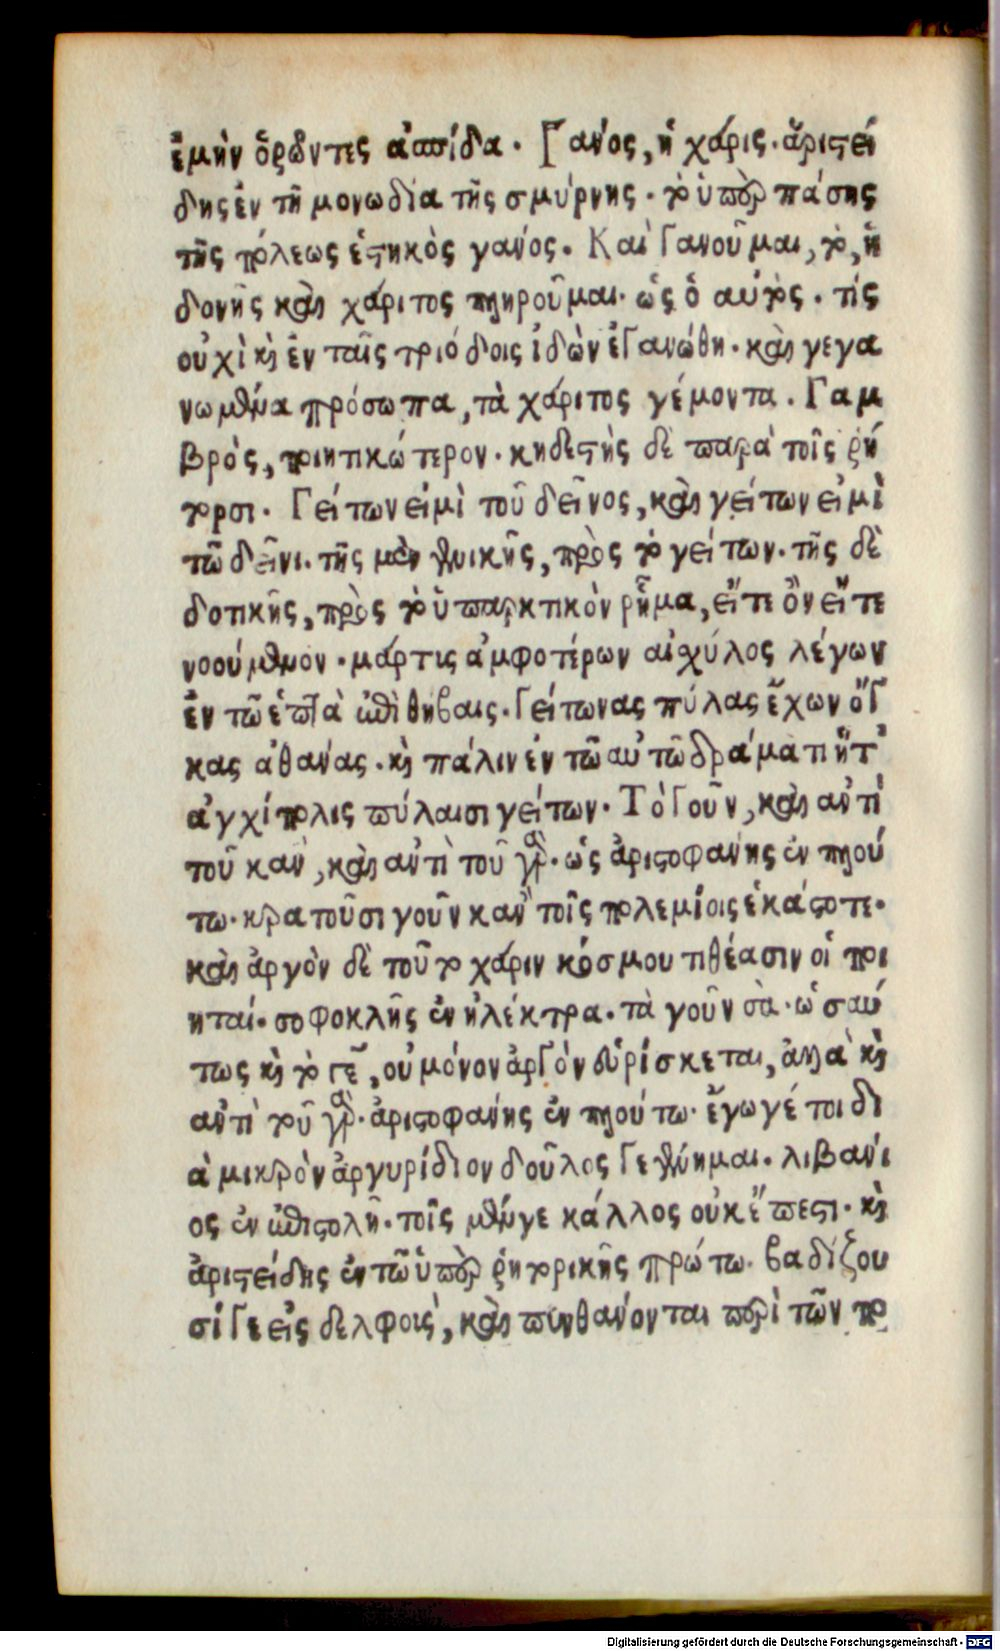 ἐμὴν ὁρῶντες ἀσπίδα. Γανός, ἡ χάρις. ἀριστεί
δης ἐν τῆ μονωδία τῆς σμύρνης. τὸ ὑπὲρ πάσης
τῆς πόλεως ἑστηκὸς γανός. Καὶ Γανοῦμαι, τὸ, ἡ
δονῆς καὶ χάριτος πληροῦμαι. ὡς ὁ αὐτός. τίς
οὐχὶ κὶ ἐν ταῖς τριόδοις ἰδὼν ἐΓανώθη. καὶ γεγα
νωμένα πρόσωπα, τὰ χάριτος γέμοντα. Γαμ
βρὸς, ποιητικώτερον. κηδεστὴς δὲ παρὰ τοῖς ῥή
τορσι. Γείτων εἰμὶ τοῦ δεῖνος, καὶ γείτων εἰμὶ
τῶ δεῖνι. τῆς μὲν γενικῆς, πρὸς τὸ γείτων. τῆς δὲ
δοτικῆς, πρὸς τὸ ὑπαρκτικὸν ῥῆμα, εἴτε ὂν εἴτε
νοούμενον. μάρτις ἀμφοτέρων αἰσχύλος λέγων
ἐν τῶ ἑπτὰ ἐπὶ θήβαις. Γείτωνας πύλας ἔχων ὄΓ
κας ἀθανάς. κὶ πάλιν ἐν τῶ αὐτῶ δράματι ἥτ'
ἀγχίπολις πύλαισι γείτων. ΤὸΓοῦν, καὶ αντὶ
τοῦ καν, καὶ αντὶ τοῦ γὰρ. ὡς ἀριστοφανὴς ἐν πλού
τω. κρατοῦσι γοῦν καν τοῖς πολεμίοις ἑκάστοτε.
καὶ ἀργὸν δὲ τοῦτο χάριν κόσμου τιθέασιν οἱ ποι
ηταί. σοφοκλῆς ἐν ἠλέκτρα. τὰ γοῦν σὰ. ὡσαύ
τως κὶ τὸ Γε, οὐ μόνον ἀρΓὸν εὑρίσκεται, ἀλλὰ κὶ
αντὶ τοῦ γὰρ. ἀριστοφανὴς ἐν πλούτω. ἔγωγέ τοι δι
ὰ μικρὸν ἀργυρίδιον δοῦλος Γεγένημαι. λιβανι
ος ἐν ἐπιστολῆ. τοῖς μέν γε κάλλος οὐκ ἔπεστι. κὶ
ἀριστείδης ἐν τῶ ὑπὲρ ῥητορικῆς πρώτω. βαδίζου
σί Γε εἰς δελφοὺς, καὶ πυνθανονται περὶ τῶν πο
Digitalisierung gefördert durch die Deutsche Forschungsgemeinschaft - DFG